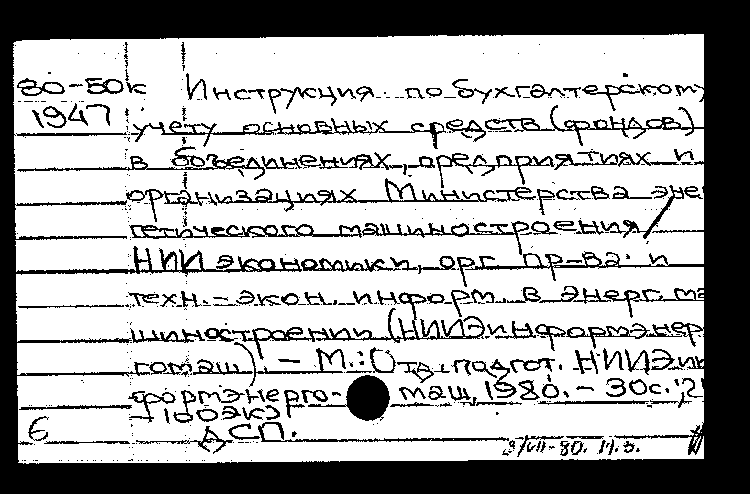 80-50к Инструкция по бухгалтерскому
1947 учету основных средств (фондов)
в объединениях, предприятиях и
организациях Министерства энер
гетического машиностроения /
НИИ экономики, орг. пр-ва и
техн.-экон. информ. в энерг. ма
шиностроении (НИИЭинформэнер
гомаш). – М.: Отд. подгот. НИИЭин
формэнерго- маш, 1980. – 30с.; 2
– 100экз
6 ДСП.
3/VII-80.